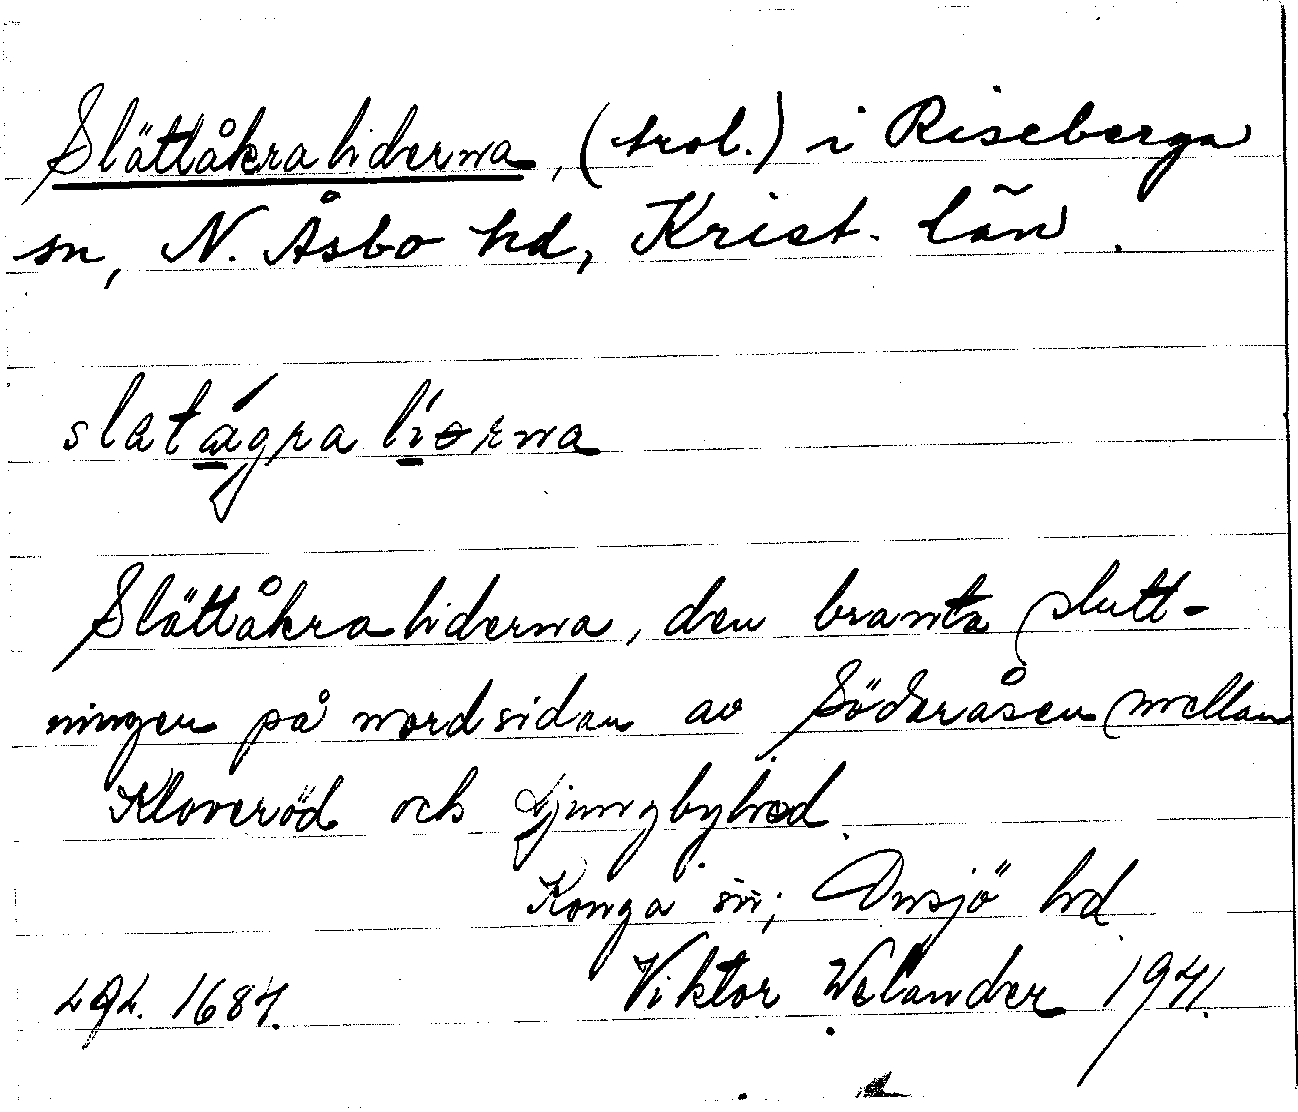 Slättåkraliderna, (trol.) i Riseberga
sn, N. Åsbo hd, Krist. län.
Slättåkraliderna, den branta slutt-
ningen på nordsidan av Söderåsen mellan
Kloveröd och Ljungbyhed.
Konga sn; Onsjö hd
Viktor Welander 1941.